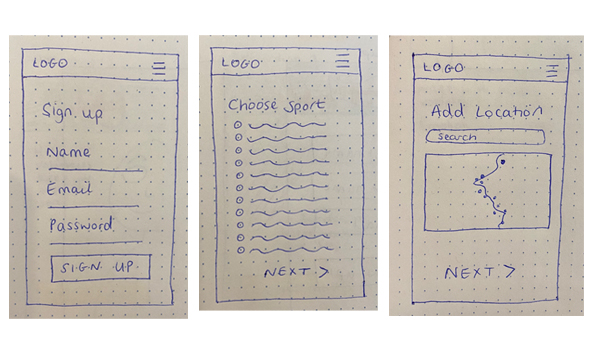 LOGO
Sign up
Name
Email
Password
SIGN UP
LOGO
Choose Sport
NEXT >
LOGO
Add Location
search
NEXT >